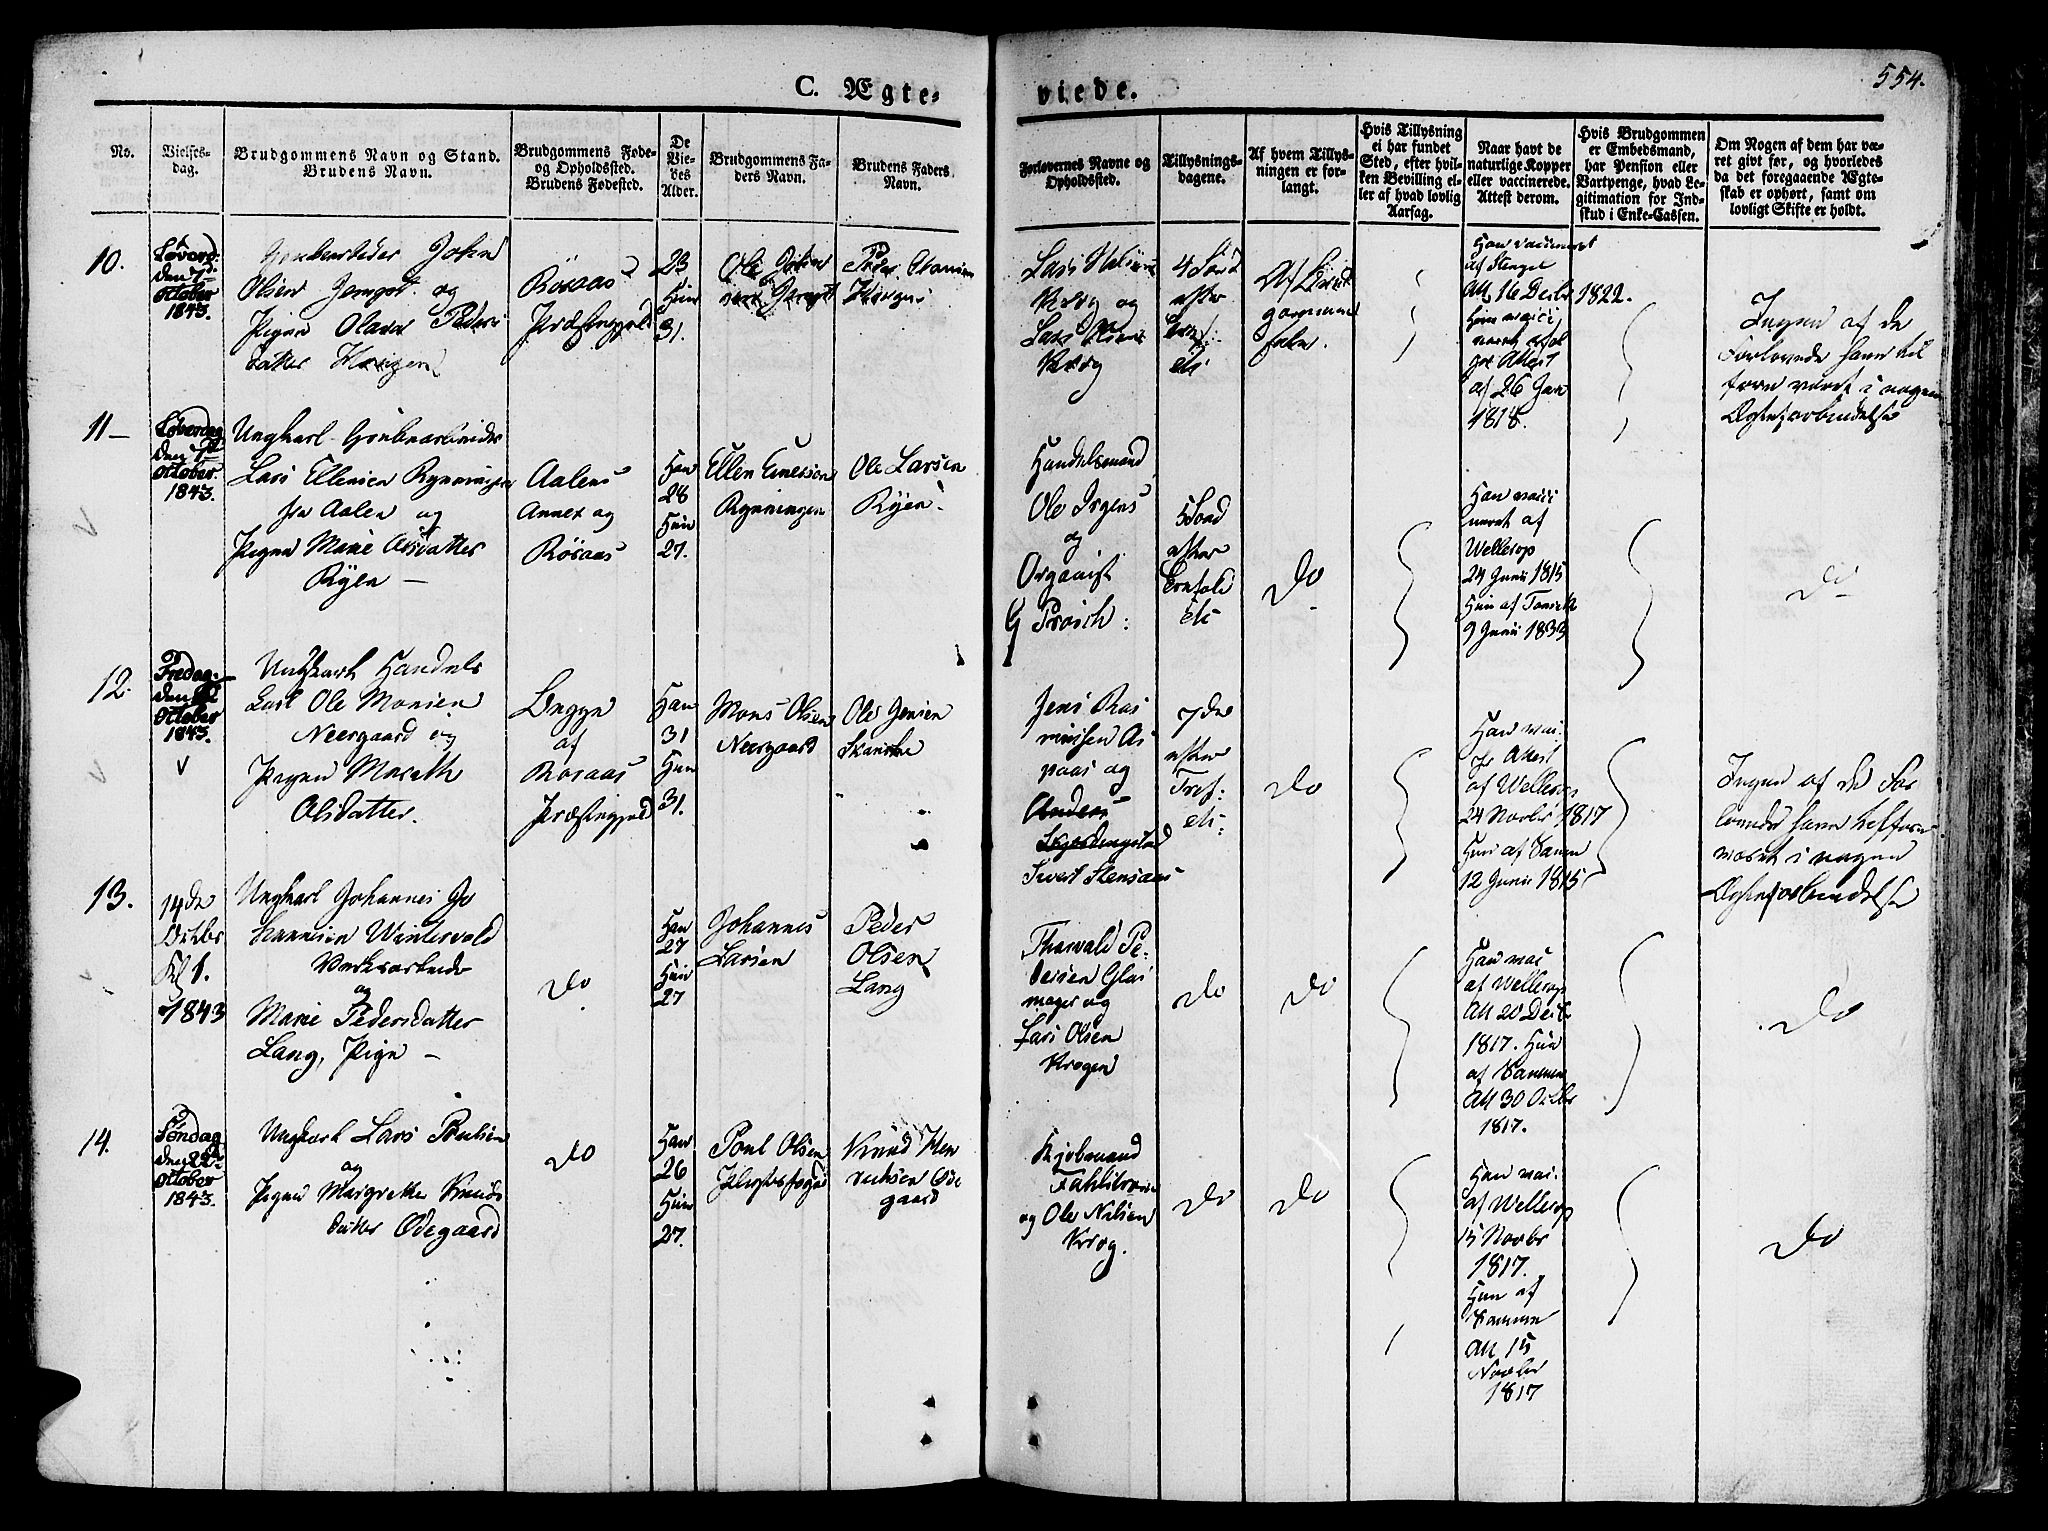 554.
C. Ægte-
viede.
No.
Vielses-
dag.
Brudgommens Navn og Stand.
Brudens Navn.
Brudgommens Føde-
og Opholdssted.
Brudens Fødested.
De
Vie-
des
Alder.
Brudgommens Fa-
ders Navn.
Brudens Faders
Navn.
Forlovernes Navne og
Opholdssted.
Tillysnings-
dagene.
Af hvem Tillys-
ningen er for-
langt.
Hvis Tillysning
ei har fundet
Sted, efter hvil-
ken Bevilling el-
ler af hvad lovlig
Aarsag.
Naar havt de
naturlige Kopper
eller vaccinerede.
Attest derom.
Hvis Brudgommen
er Embedsmand,
har Pension eller
Vartpenge, hvad Le-
gitimation for Ind-
skud i Enke-Cassen.
Om Nogen af dem har væ-
ret givt før, og hvorledes
da det foregaaende Ægte-
skab er ophørt, samt om
lovligt Skifte er holdt.
10.
Løverd:
den 7de
October
1843.
John
Olsen og
Pigen Peders
datter
Røraas
Præstegjeld
23
Hun
31.
Ole
Peder
Lars
Krog og
Lars Olsen
Krog
4
efter
Af
Han vaccineret
af
Att 16 Decbr 1822.
Hun vacci
neret
Attest
af 26 Jan
1818.
Ingen af de
Forlovede have til
forn været i nogen
Ægteforbindelse
11
Løverdag
den 7de
October
1843.
Ungkarl Grubearbeider
Lars Ellensen Rynningen
fra Aalen og
Pigen Marie Olsdatter
Ryen
Aalens
Annex og
Røraas
Han
28
Hun
27.
Ellen
Rynningen
Ole Larsen
Ryen
Handelsmand
Ole Irgens
og
Organist
G Prösch:
5
efter
Do
Han vacci
neret af
Wellerop
24 Junii 1815
Hun af
9 Junii 1833
Do
12.
Fredag
den
October
1843.
Ungkarl Handels
Ole Monsen
Neergaard og
Pigen Mareth
Olsdatter.
Begge
af
Røraas
Præstegjeld
Han
31
Hun
31.
Mons Olsen
Neergaard
Ole Jensen
Skancke
Jens Ras
mussen As
paas og
Anders
Sivert Stensaas
7de
efter
Tref:
Do
Han vac.
Attest
af Wellerop
24 Novbr 1817
Hun af Samme
12 Junii 1815
Ingen af de For
lovede have tilforn
været i nogen
Ægteforbindelse
13.
14de
Octbr
Kl 1.
1843
Ungkarl Johannes Jo
hannesen Wintervold
Verksarbeider
og
Marie Pedersdatter
Lang, Pige
Do
Han
27
Hun
27
Johannes
Larsen
Peder
Olsen
Lang
Thorvald Pe
dersen Glas
mager og
Lars Olsen
Krogen
Do
Do
Han vac
af Wellerop
Att 20 Decb
1817. Hun
af Samme
Att 30 Octbr
1817.
Do
14.
Søndag
den 22de
October
1843.
Ungkarl Lars Poulsen
og
Pigen Margrethe Knuds
datter Ødegaard
Do
Han
26
Hun
27.
Poul Olsen
Knud Hen
richsen Øde
gaard
Fahlstrøm
og Ole Nilsen
Krog.
Do
Do
Han vac.
af Wellerop
15 Novbr
1817.
Hun af
Samme
Att 15
Novbr
1817
Do